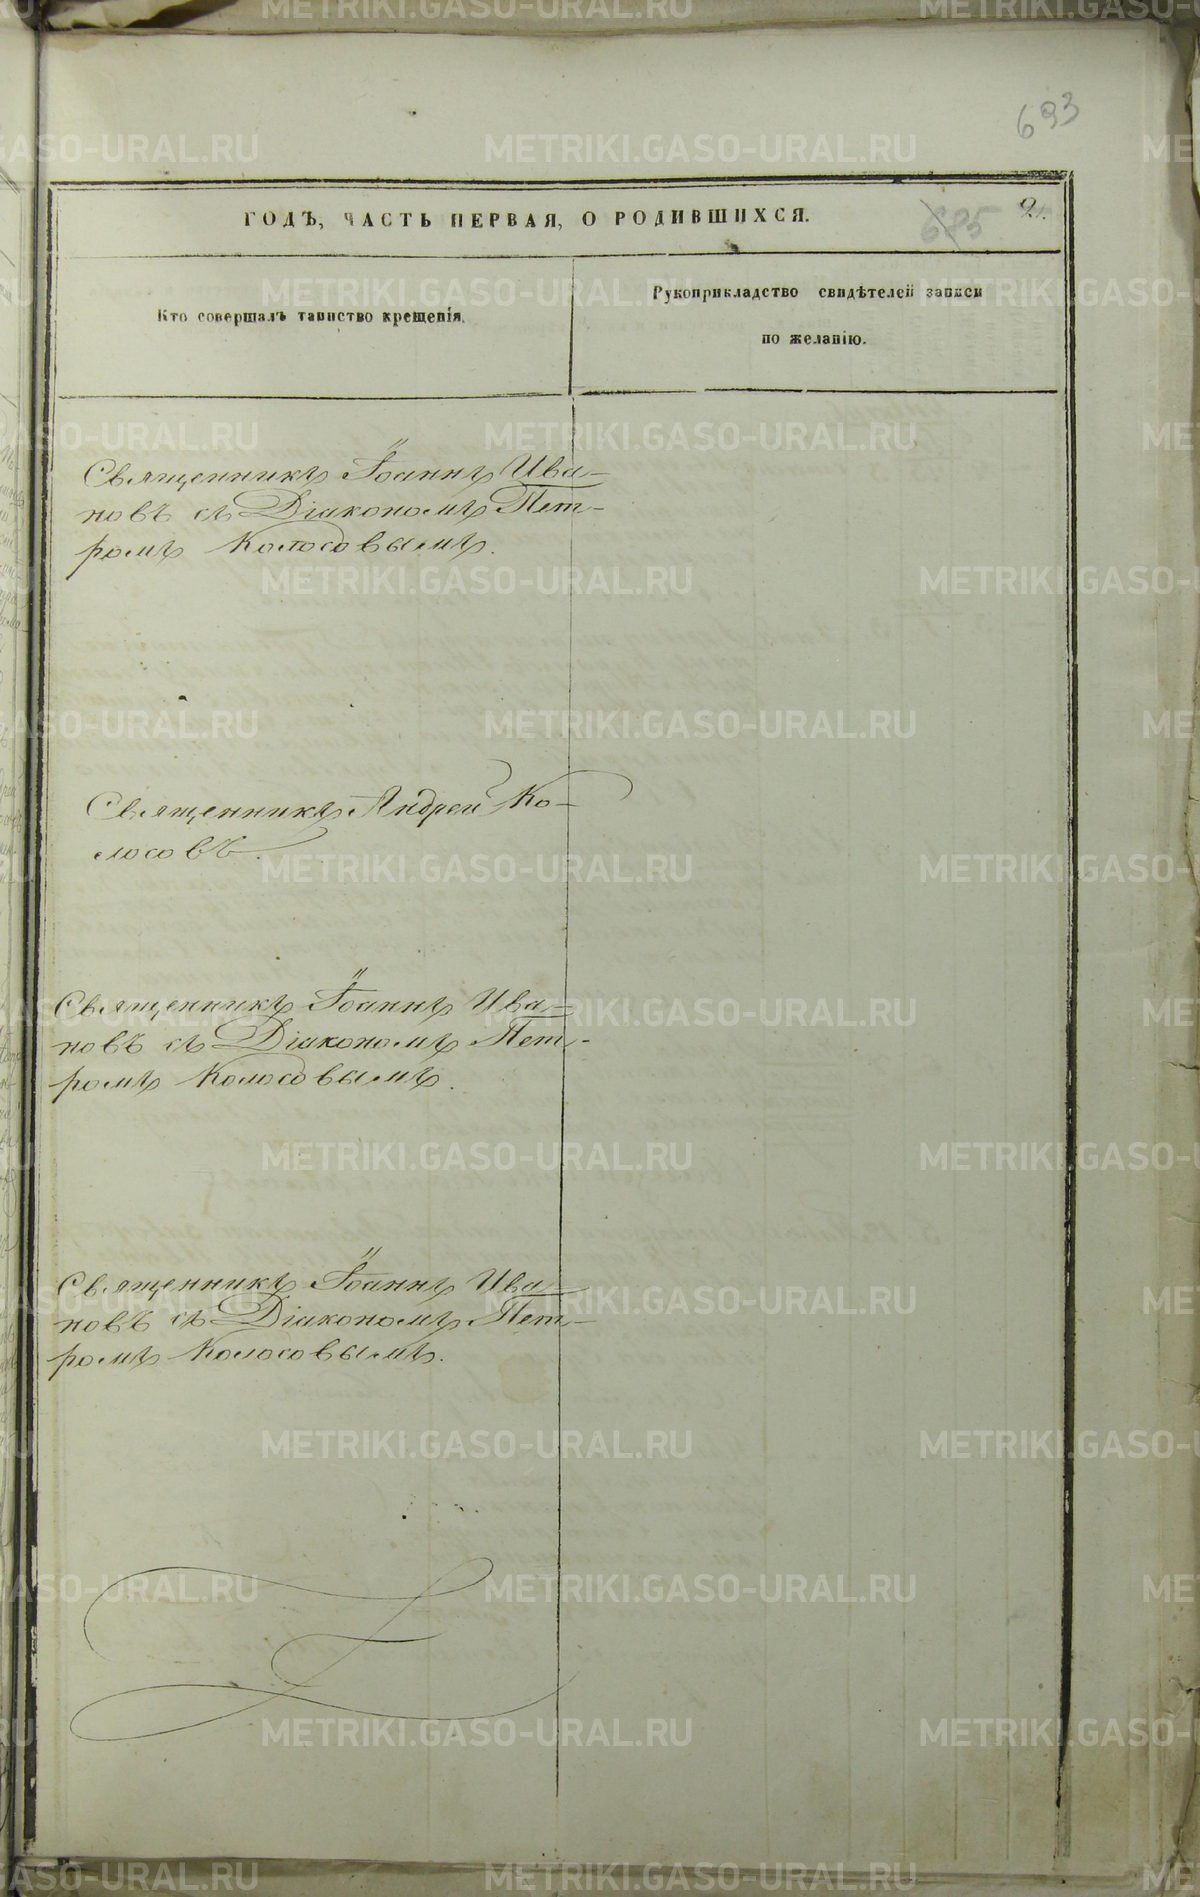 693
ГОДЪ, ЧАСТЬ ПЕРВАЯ, О РОДИВШИХСЯ.
685
2.
Кто совершалъ таинство крещенія.
Рукоприкладство свидѣтелей записи
по желанію.
Священникъ Іоаннъ Ива-
новъ съ Діакономъ Пет-
ромъ Колосовымъ.
Священникъ Андрей Ко-
лосовъ.
Священникъ Іоаннъ Ива-
новъ съ Діакономъ Пет-
ромъ Колосовымъ.
Священникъ Іоаннъ Ива-
новъ съ Діакономъ Пет-
ромъ Колосовымъ.
METRIKI.GASO-URAL.RU